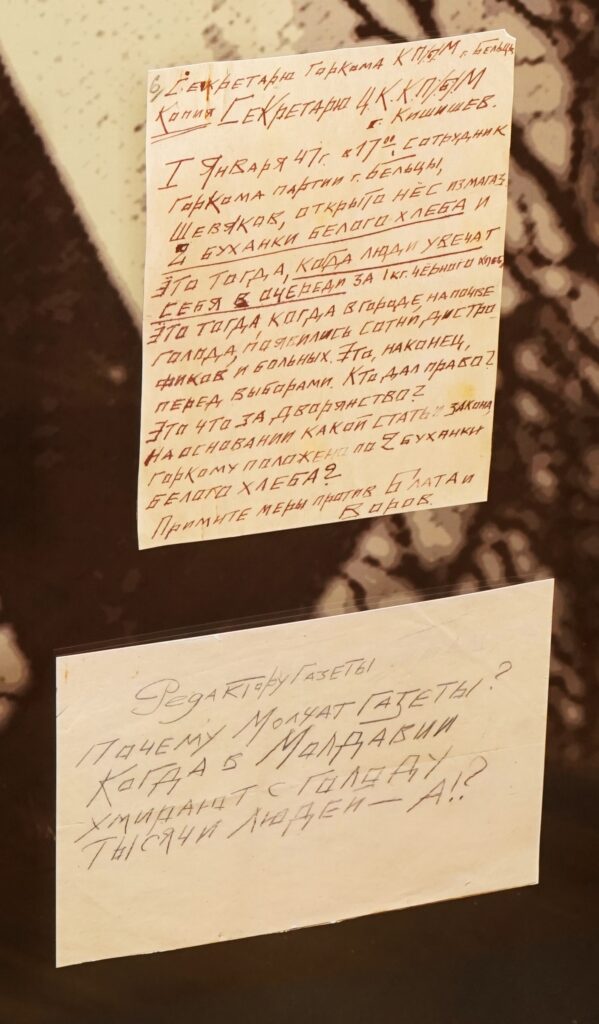 6) Секретарю Горкома КП/б/М г. Бельцы
Копия Секретарю ЦК.КП/б/М
г. Кишишев.
I Января 47г. в 17 00, сотрудник
горкома партии г. Бельцы,
Шевяков, открыто нёс из магаз
2 буханки белого хлеба и
это тогда, когда люди увечат
себя в очереди за 1 кг. чёрного хлеб,
это тогда когда в городе на почве
голода, появились сотни дистро
фиков и больных. Это, наконец,
перед выборами. Кто дал право?
Это что за дворянство?
На основании какой статьи закона
горкому положено по 2 буханки
белого хлеба?
Примите меры против Блата и
Воров.
Редактору газеты
Почему молчат газеты?
Когда в Молдавии
умирают с голоду
тысячи людей — А!?